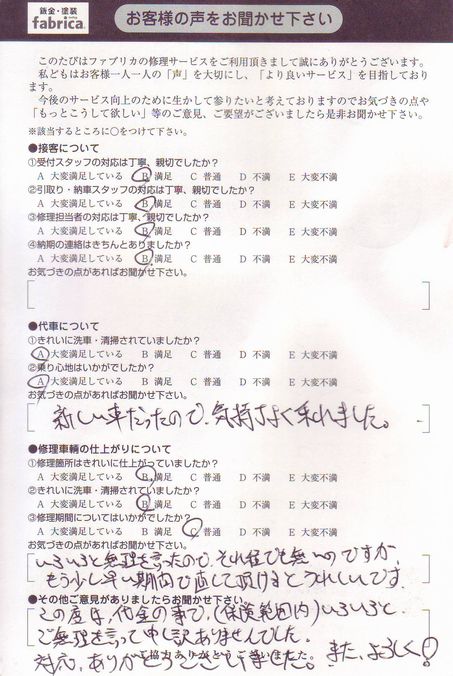 鈑金・塗装
fabrica
お客様の声をお聞かせ下さい
このたびはファブリカの修理サービスをご利用頂きまして誠にありがとうございます。
私どもはお客様一人一人の「声」を大切にし、「より良いサービス」を目指しており
ます。
今後のサービス向上のために生かして参りたいと考えておりますのでお気づきの点や
「もっとこうして欲しい」等のご意見、ご要望がございましたら是非お聞かせ下さい。
※該当するところに○をつけて下さい。
●接客について
①受付スタッフの対応は丁寧、親切でしたか?
A 大変満足している B 満足 C 普通 D 不満 E 大変不満
②引取り・納車スタッフの対応は丁寧、親切でしたか?
A 大変満足している B 満足 C 普通 D 不満 E 大変不満
③修理担当者の対応は丁寧、親切でしたか?
A 大変満足している B 満足 C 普通 D 不満 E 大変不満
④納期の連絡はきちんとありましたか?
A 大変満足している B 満足 C 普通 D 不満 E 大変不満
お気づきの点があればお聞かせ下さい。
●代車について
①きれいに洗車・清掃されていましたか?
A 大変満足している B 満足 C 普通 D 不満 E 大変不満
②乗り心地はいかがでしたか?
A 大変満足している B 満足 C 普通 D 不満 E 大変不満
お気づきの点があればお聞かせ下さい。
新しい車だったので、気持ちよく乗れました。
●修理車輌の仕上がりについて
①修理箇所はきれいに仕上がっていましたか?
A 大変満足している B 満足 C 普通 D 不満 E 大変不満
②きれいに洗車・清掃されていましたか?
A 大変満足している B 満足 C 普通 D 不満 E 大変不満
③修理期間についてはいかがでしたか?
A 大変満足している B 満足 C 普通 D 不満 E 大変不満
お気づきの点があればお聞かせ下さい。
いろいろと無理を言ったので、それ程でも無いのですが、
もう少し早い期間で直して頂けるとうれしいです。
●その他ご意見がありましたらお聞かせ下さい。
この度は、代金の事で、(保険範囲内)いろいろと
ご無理を言って申し訳ありませんでした。
対応、ありがとうございました。また、よろしく!
ご協力ありがとうございました。